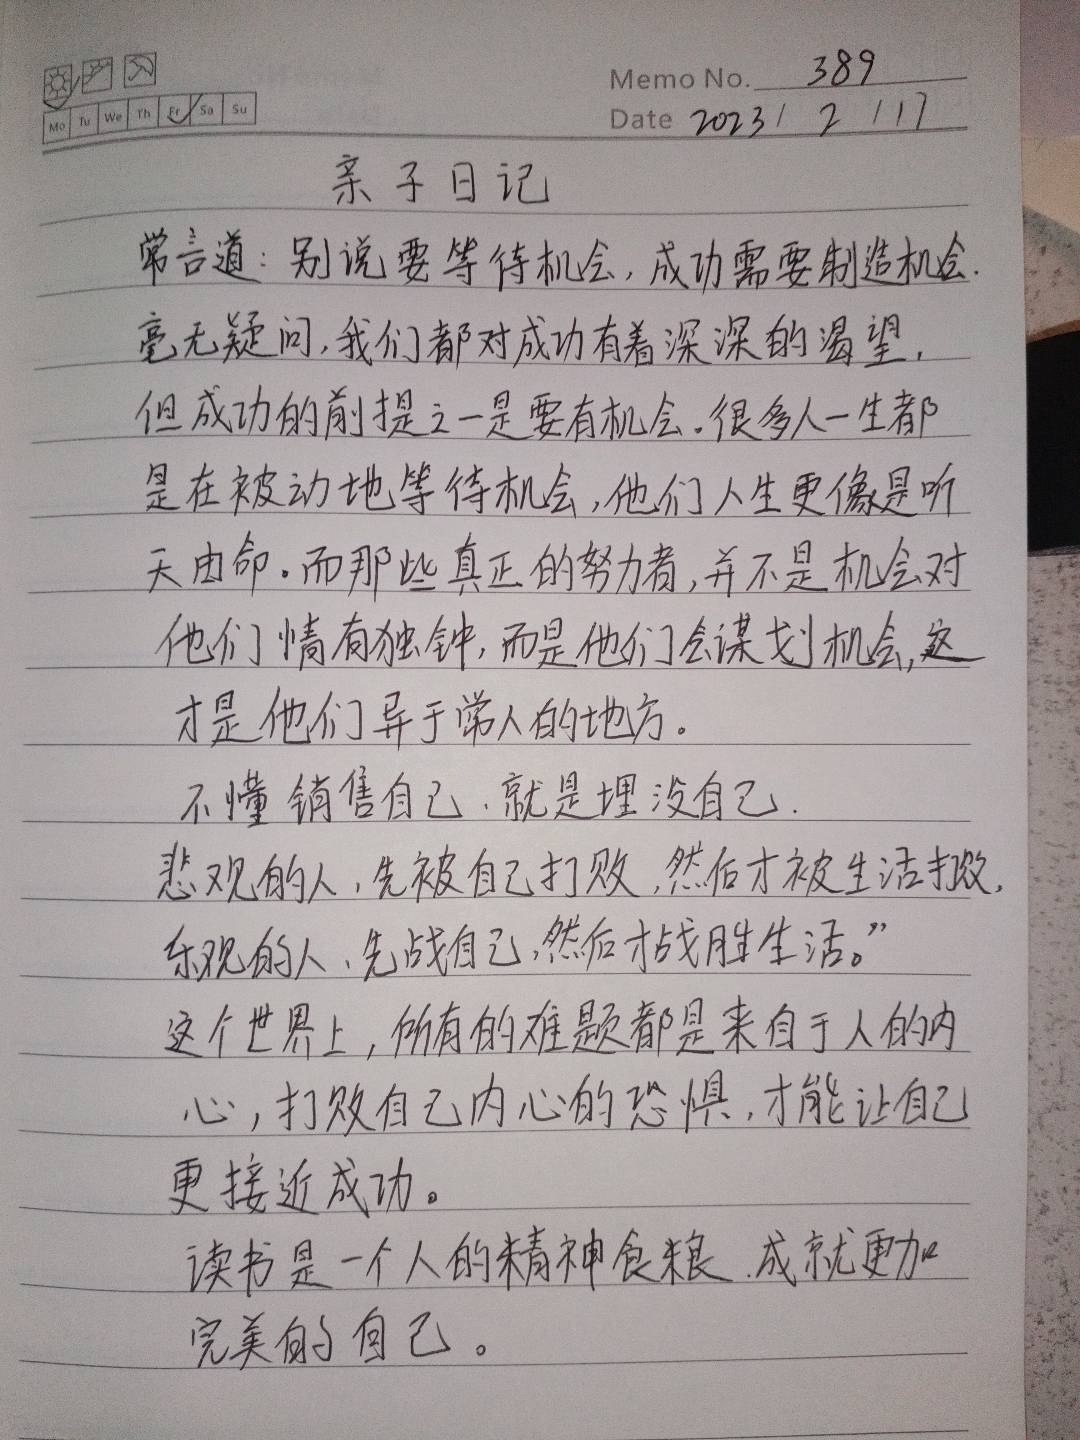 Memo No. 389
Mo Tu We Th Fr Sa Su
Date 2023 / 2 / 17
亲子日记
常言道：别说要等待机会，成功需要制造机会.
毫无疑问，我们都对成功有着深深的渴望，
但成功的前提之一是要有机会。很多人一生都
是在被动地等待机会，他们人生更像是听
天由命。而那些真正的努力者，并不是机会对
他们情有独钟，而是他们会谋划机会，这
才是他们异于常人的地方。
不懂销售自己、就是埋没自己.
悲观的人、先被自己打败，然后才被生活打败，
乐观的人、先战自己，然后才战胜生活。”
这个世界上，所有的难题都是来自于人的内
心，打败自己内心的恐惧，才能让自己
更接近成功。
读书是一个人的精神食粮、成就更加
完美的自己。